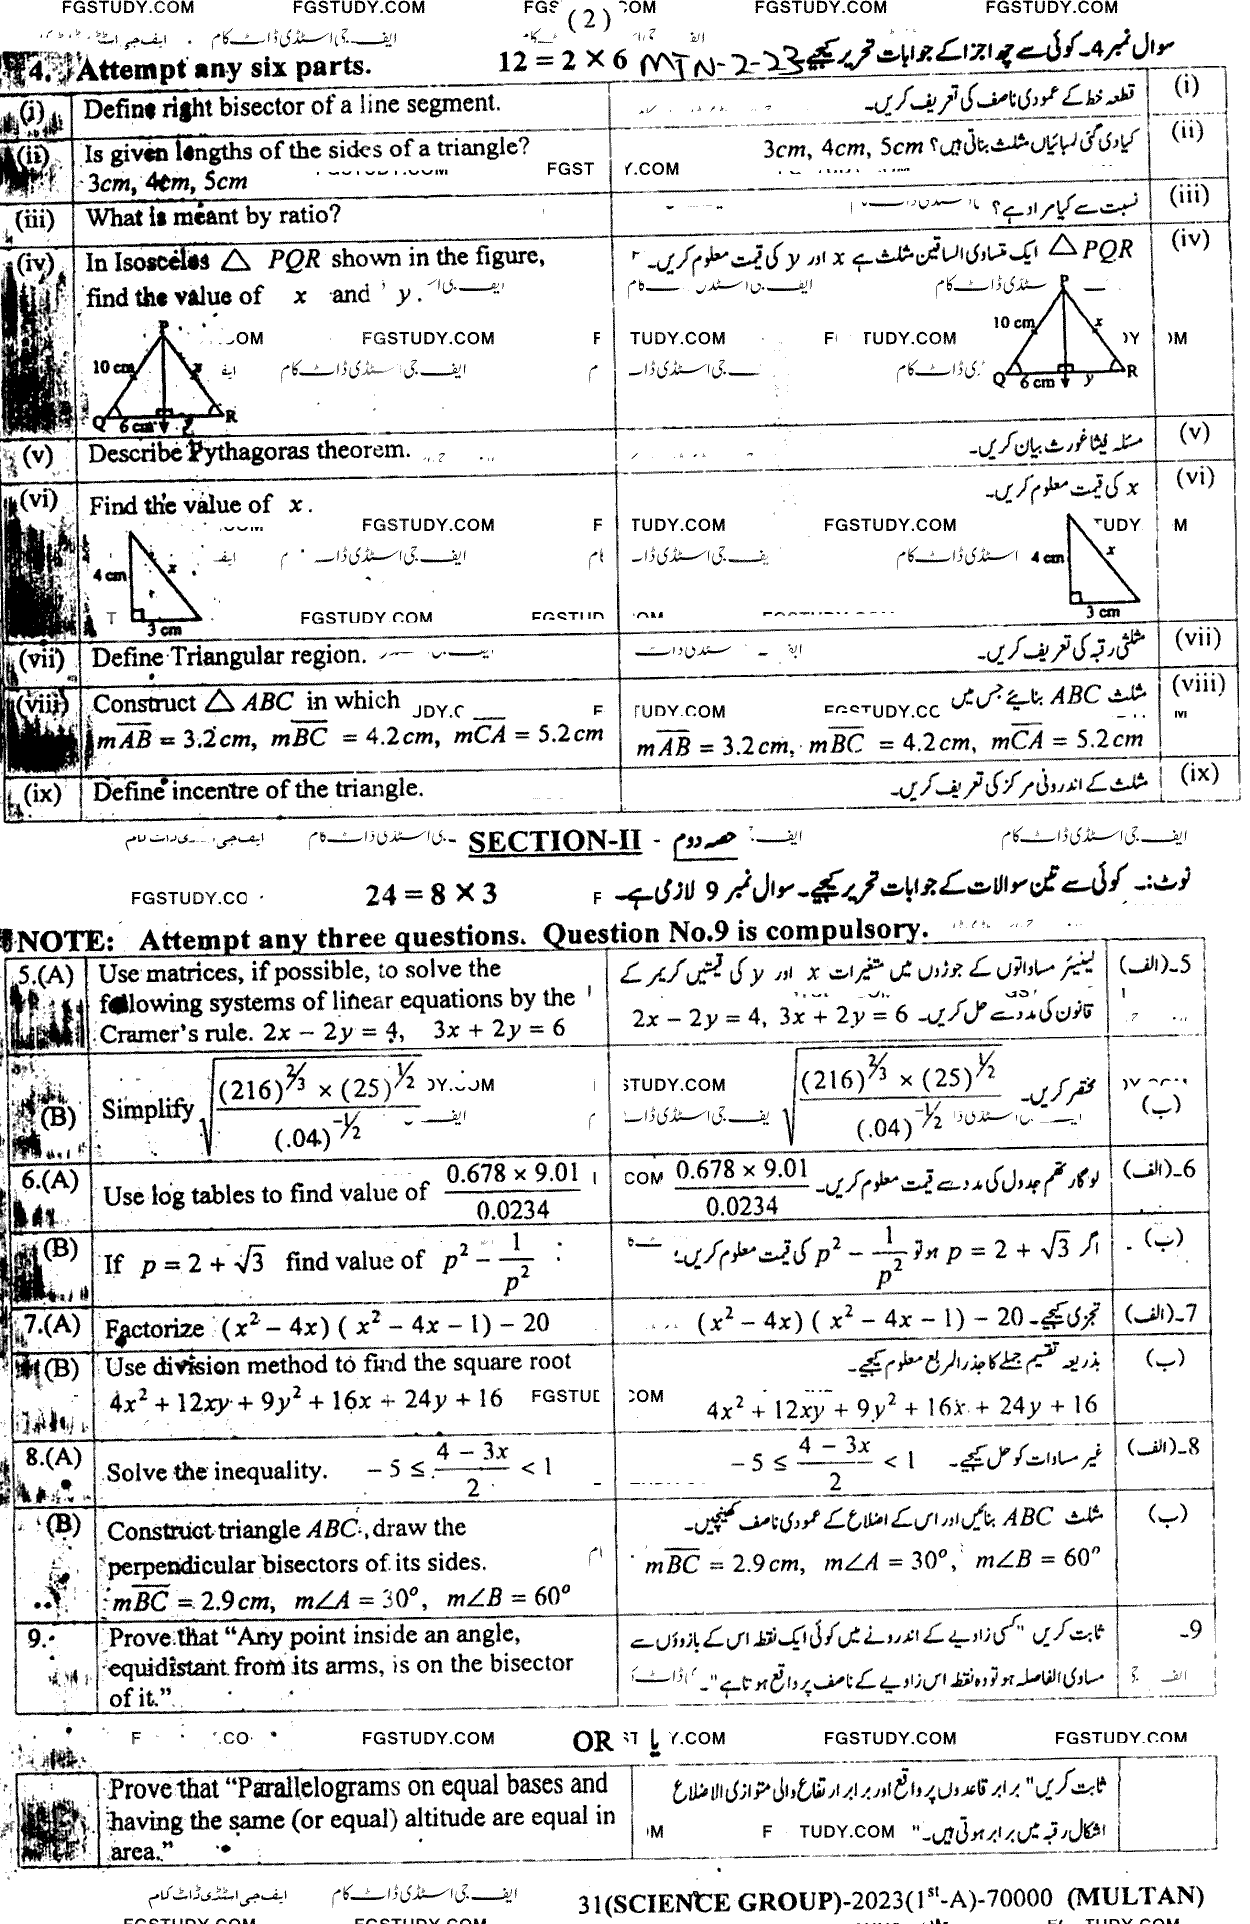 FGSTUDY.COM FGSTUDY.COM COM FGSTUDY.COM FGSTUDY.COM
(2)
ایف جی اسٹڈی ڈاٹ کام
4. Attempt any six parts. 12 = 2 × 6 MTN-2-23 سوال نمبر 4۔ کوئی سے چھ اجزا کے جوابات تحریر کیجیے
(i) Define right bisector of a line segment. قطعہ خط کے عمودی ناصف کی تعریف کریں۔ (i)
(ii) Is given lengths of the sides of a triangle? کیا دی گئی لمبائیاں مثلث بناتی ہیں؟ 3cm, 4cm, 5cm (ii)
3cm, 4cm, 5cm
(iii) What is meant by ratio? نسبت سے کیا مراد ہے؟ (iii)
(iv) In Isosceles △ PQR shown in the figure, △ PQR ایک متساوی الساقین مثلث ہے x اور y کی قیمت معلوم کریں۔ (iv)
find the value of x and y.
P 10 cm x Q R 6 cm y
P 10 cm x Q R 6 cm y
FGSTUDY.COM
(v) Describe Pythagoras theorem. مسئلہ فیثاغورث بیان کریں۔ (v)
(vi) Find the value of x. x کی قیمت معلوم کریں۔ (vi)
FGSTUDY.COM TUDY.COM FGSTUDY.COM
4 cm x 3 cm
4 cm x 3 cm
FGSTUDY.COM
(vii) Define Triangular region. مثلثی رقبہ کی تعریف کریں۔ (vii)
(viii) Construct △ ABC in which مثلث ABC بنائیے جس میں (viii)
mAB = 3.2cm, mBC = 4.2cm, mCA = 5.2cm mAB = 3.2cm, mBC = 4.2cm, mCA = 5.2cm
(ix) Define incentre of the triangle. مثلث کے اندرونی مرکز کی تعریف کریں۔ (ix)
SECTION-II - حصہ دوم
24 = 8 × 3 نوٹ:۔ کوئی سے تین سوالات کے جوابات تحریر کیجیے۔ سوال نمبر 9 لازمی ہے۔
NOTE: Attempt any three questions. Question No.9 is compulsory.
5.(A) Use matrices, if possible, to solve the لینیئر مساواتوں کے جوڑوں میں متغیرات x اور y کی قیمتیں کریمر کے 5۔(الف)
following systems of linear equations by the قانون کی مدد سے حل کریں۔ 2x − 2y = 4, 3x + 2y = 6
Cramer's rule. 2x − 2y = 4, 3x + 2y = 6
(B) Simplify √((216)^2/3 × (25)^1/2 / (.04)^-1/2) مختصر کریں۔ √((216)^2/3 × (25)^1/2 / (.04)^-1/2) (ب)
6.(A) Use log tables to find value of 0.678 × 9.01 / 0.0234 لوگارتھم جدول کی مدد سے قیمت معلوم کریں۔ 0.678 × 9.01 / 0.0234 6۔(الف)
(B) If p = 2 + √3 find value of p² − 1/p² اگر p = 2 + √3 ہو تو p² − 1/p² کی قیمت معلوم کریں۔ (ب)
7.(A) Factorize (x² − 4x) ( x² − 4x − 1) − 20 تجزی کیجیے۔ (x² − 4x) ( x² − 4x − 1) − 20 7۔(الف)
(B) Use division method to find the square root بذریعہ تقسیم جملے کا جذر المربع معلوم کیجیے۔ (ب)
4x² + 12xy + 9y² + 16x + 24y + 16 4x² + 12xy + 9y² + 16x + 24y + 16
8.(A) Solve the inequality. −5 ≤ (4 − 3x)/2 < 1 غیر مساوات کو حل کیجیے۔ −5 ≤ (4 − 3x)/2 < 1 8۔(الف)
(B) Construct triangle ABC, draw the مثلث ABC بنائیں اور اس کے اضلاع کے عمودی ناصف کھینچیں۔ (ب)
perpendicular bisectors of its sides. mBC = 2.9cm, m∠A = 30°, m∠B = 60°
mBC = 2.9cm, m∠A = 30°, m∠B = 60°
9. Prove that "Any point inside an angle, ثابت کریں "کسی زاویے کے اندرونے میں کوئی ایک نقطہ اس کے بازوؤں سے 9۔
equidistant from its arms, is on the bisector مساوی الفاصلہ ہو تو وہ نقطہ اس زاویے کے ناصف پر واقع ہوتا ہے"۔
of it."
FGSTUDY.COM OR یا FGSTUDY.COM FGSTUDY.COM
Prove that "Parallelograms on equal bases and ثابت کریں "برابر قاعدوں پر واقع اور برابر ارتفاع والی متوازی الاضلاع
having the same (or equal) altitude are equal in اشکال رقبہ میں برابر ہوتی ہیں۔"
area."
31(SCIENCE GROUP)-2023(1st-A)-70000 (MULTAN)